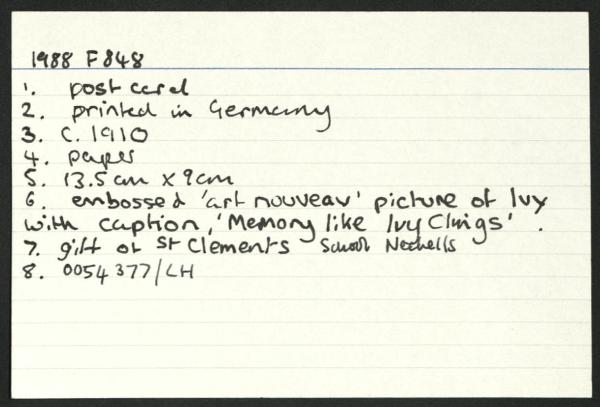 1988 F848
1. post card
2. printed in Germany
3. C. 1910
4. paper
5. 13.5cm x 9cm
6. embossed 'art nouveau' picture of Ivy
with caption, 'Memory like Ivy Clings'.
7. gift of St Clements School Nechells
8. 0054377/LH